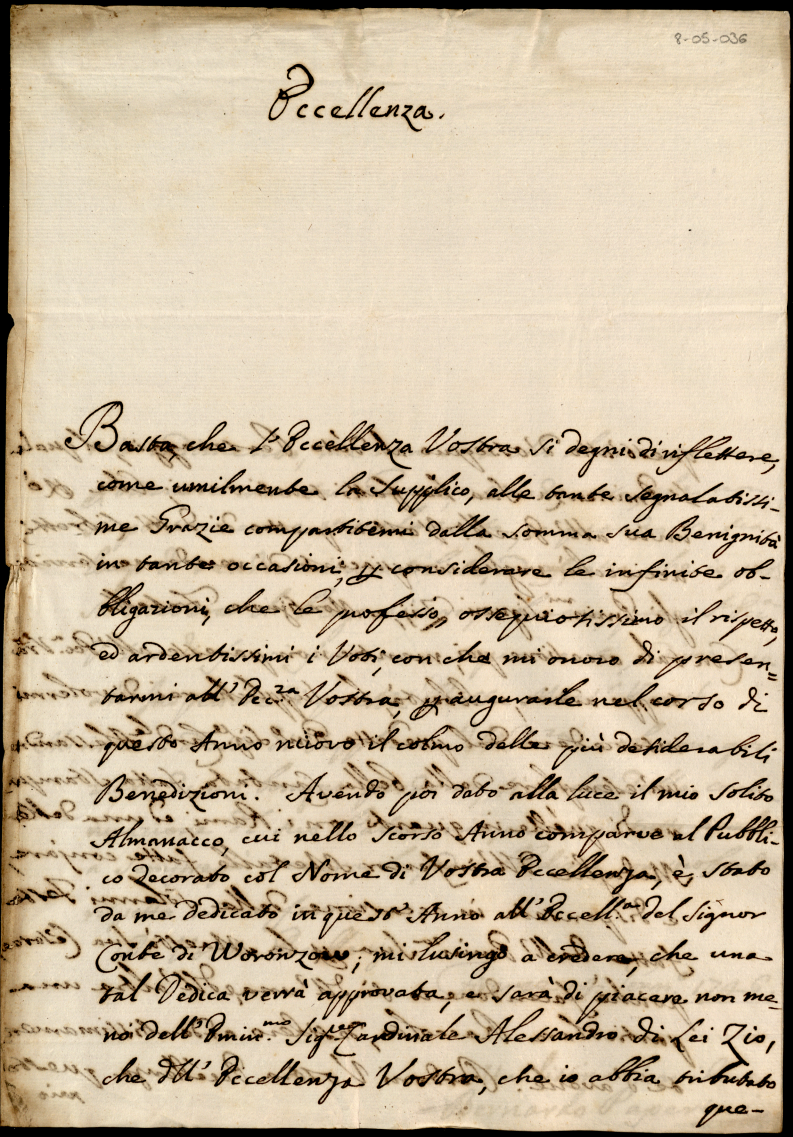 2-05-036
Eccellenza.
Basta, che l'Eccellenza Vostra si degni di riflettere,
come umilmente la supplico, alle tante segnalatissi-
me Grazie compartitemi dalla somma sua Benignità
in tante occasioni, e considerare le infinite ob-
bligazioni, che le professo, ossequiosissimo il rispetto,
ed ardentissimi i Voti, con che mi onoro di presen=
tarmi all' Ecc.za Vostra, augurarle nel corso di
questo Anno nuovo il colmo delle più desiderabili
Benedizioni. Avendo poi dato alla luce il mio solito
Almanacco, cui nello scorso Anno comparve al Pubbli-
co decorato col Nome di Vostra Eccellenza, è stato
da me dedicato in quest' Anno all' Eccell.za del Signor
Conte di Woronzow; mi lusingo a credere, che una
tal Dedica verrà approvata, e sarà di piacere non me-
no dell' Emin.mo Sig.r Cardinale Alessandro di Lei Zio,
che all' Eccellenza Vostra, che io abbia tributato
que-